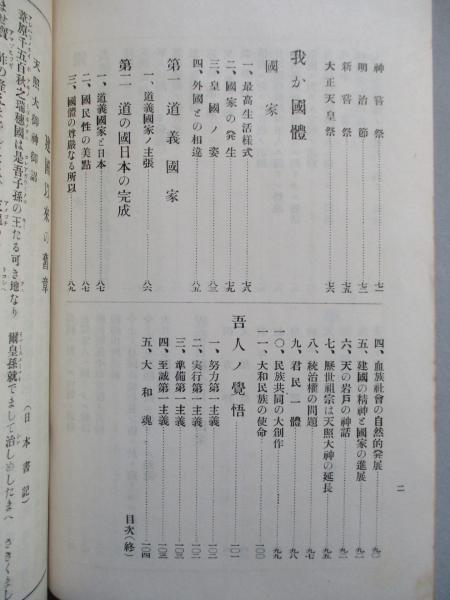 神嘗祭……七二
明治節……七三
新嘗祭……七五
大正天皇祭……七六
我か國體
國家
一、最高生活樣式……七八
二、國家の発生……七九
三、皇國ノ姿……八三
四、外國との相違……八五
第一 道義國家
一、道義國家ノ主張……八六
第二 道の國日本の完成
一、道義國家と日本……八七
二、國民性の美點……八七
三、國體の尊嚴なる所以……八九
四、血族社會の自然的発展……九〇
五、建國の精神と國家の進展……九一
六、天の岩戸の神話……九一
七、歷世祖宗は天照大神の延長……九二
八、統治權の問題……九五
九、君民一體……九八
一〇、民族共同の大創作……九九
一一、大和民族の使命……一〇〇
吾人ノ覺悟……一〇一
一、努力第一主義……一〇二
二、實行第一主義……一〇二
三、準備第一主義……一〇三
四、至誠第一主義……一〇三
五、大和魂……一〇四
目次(終)
二
建國以來の舊章
天照大御神御詔
(日本書記)
葦原千五百秋之瑞穗國は是吾子孫の王たる可き地なり 爾皇孫就でまして治しめしたまへ